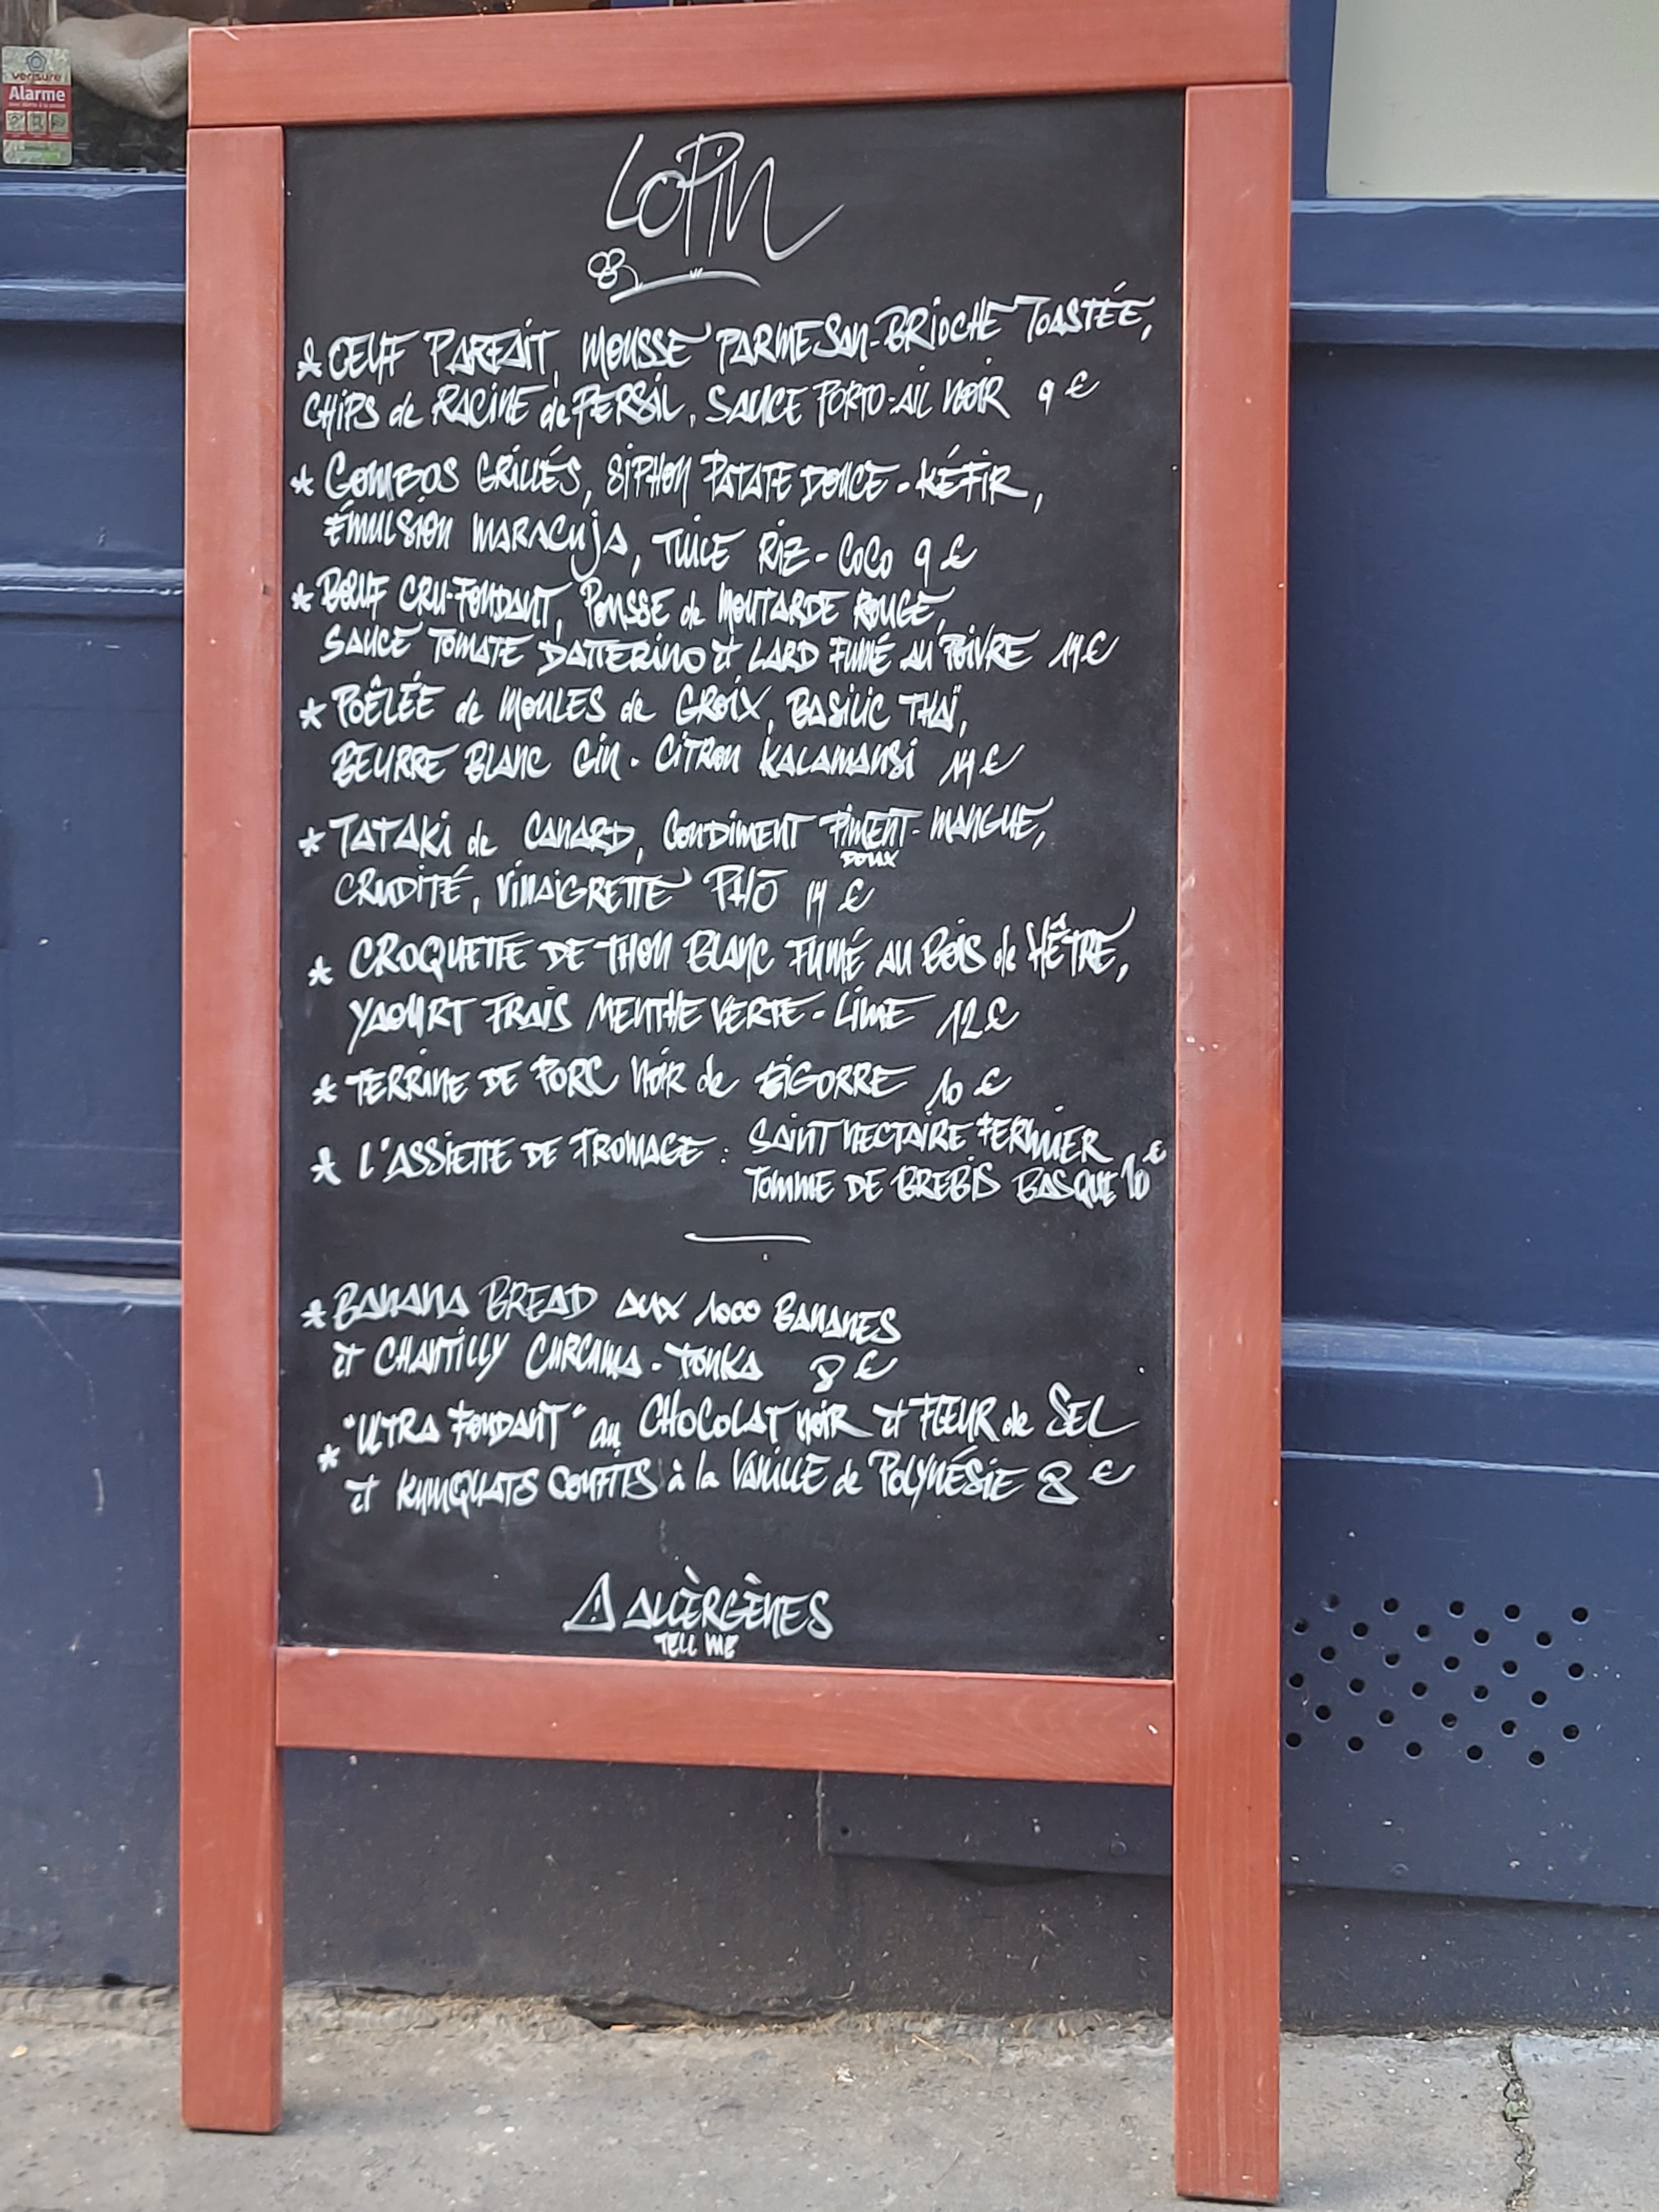 verisure
Alarme
LOPIN
* ŒUF PARFAIT, MOUSSE PARMESAN-BRIOCHE TOASTÉE,
CHIPS de RACINE de PERSIL, SAUCE PORTO-AIL NOIR 9 €
* GOMBOS GRILLÉS, SIPHON PATATE DOUCE - KÉFIR,
ÉMULSION MARACUJA, TUILE RIZ - COCO 9 €
* BŒUF CRU-FONDANT, POUSSE de MOUTARDE ROUGE,
SAUCE TOMATE DATTERINO et LARD FUMÉ AU POIVRE 14 €
* POÊLÉE de MOULES de GROIX, BASILIC THAÏ,
BEURRE BLANC GIN - CITRON KALAMANSI 14 €
* TATAKI de CANARD, CONDIMENT PIMENT - MANGUE,
DOUX
CRUDITÉ, VINAIGRETTE PHŌ 14 €
* CROQUETTE DE THON BLANC FUMÉ AU BOIS de HÊTRE,
YAOURT FRAIS MENTHE VERTE - LIME 12 €
* TERRINE DE PORC NOIR de BIGORRE 10 €
* L'ASSIETTE DE FROMAGE : SAINT NECTAIRE FERMIER
TOMME DE BREBIS BASQUE 10 €
* BANANA BREAD AUX 1000 BANANES
et CHANTILLY CURCUMA - TONKA 8 €
* "ULTRA FONDANT" au CHOCOLAT NOIR et FLEUR de SEL
et KUMQUATS CONFITS à la VANILLE de POLYNÉSIE 8 €
⚠ ALLÈRGÈNES
TELL ME